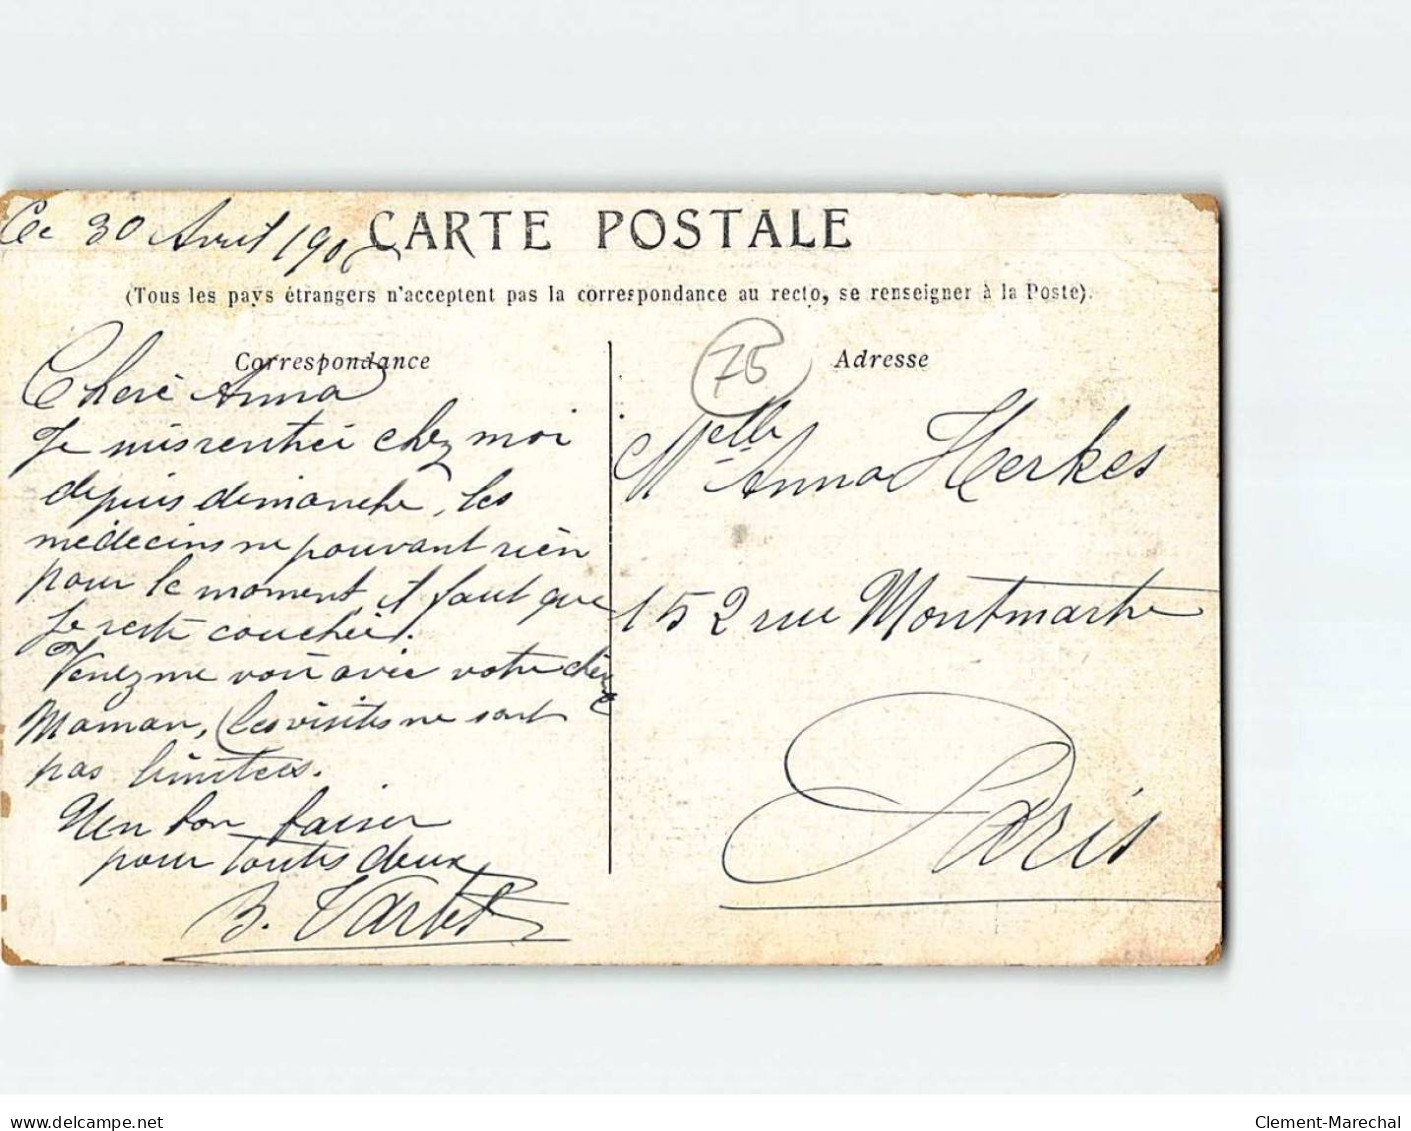 Ce 30 Avril 190
CARTE POSTALE
(Tous les pays étrangers n'acceptent pas la correspondance au recto, se renseigner à la Poste).
Correspondance
Cheré Anna
Je suis rentrée chez moi
depuis dimanche, les
médecins ne pouvant rien
pour le moment il faut que
je reste couchée.
Venez me voir avec votre chère
Maman, les visites ne sont
pas limitées.
Un bon baiser
pour toutes deux
B. Vartel
75
Adresse
Melle Anna Herkes
152 rue Montmartre
Paris
delcampe.net
Clement-Marechal